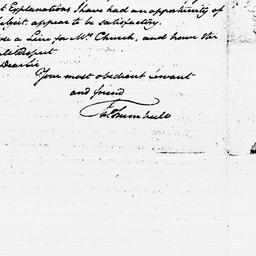 t Explanations I have had an opportunity of
ubject. appear to be satisfactory.
a Line for Mr. Church, and have the
Respect
Dear Sir
Your most obedient servant
and friend
Jn. Trumbull